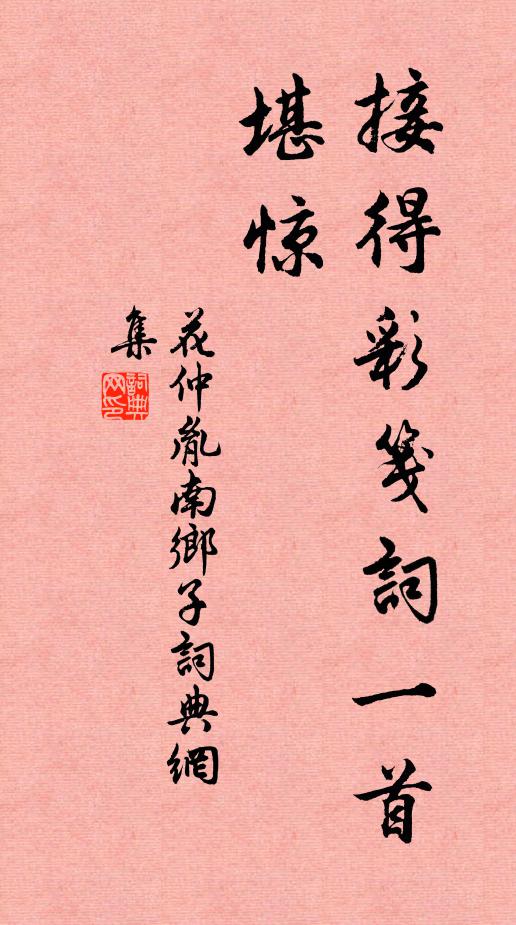 接得彩箋詞一首
堪惊
花仲胤南鄉子詞典網
集
詞典
网印